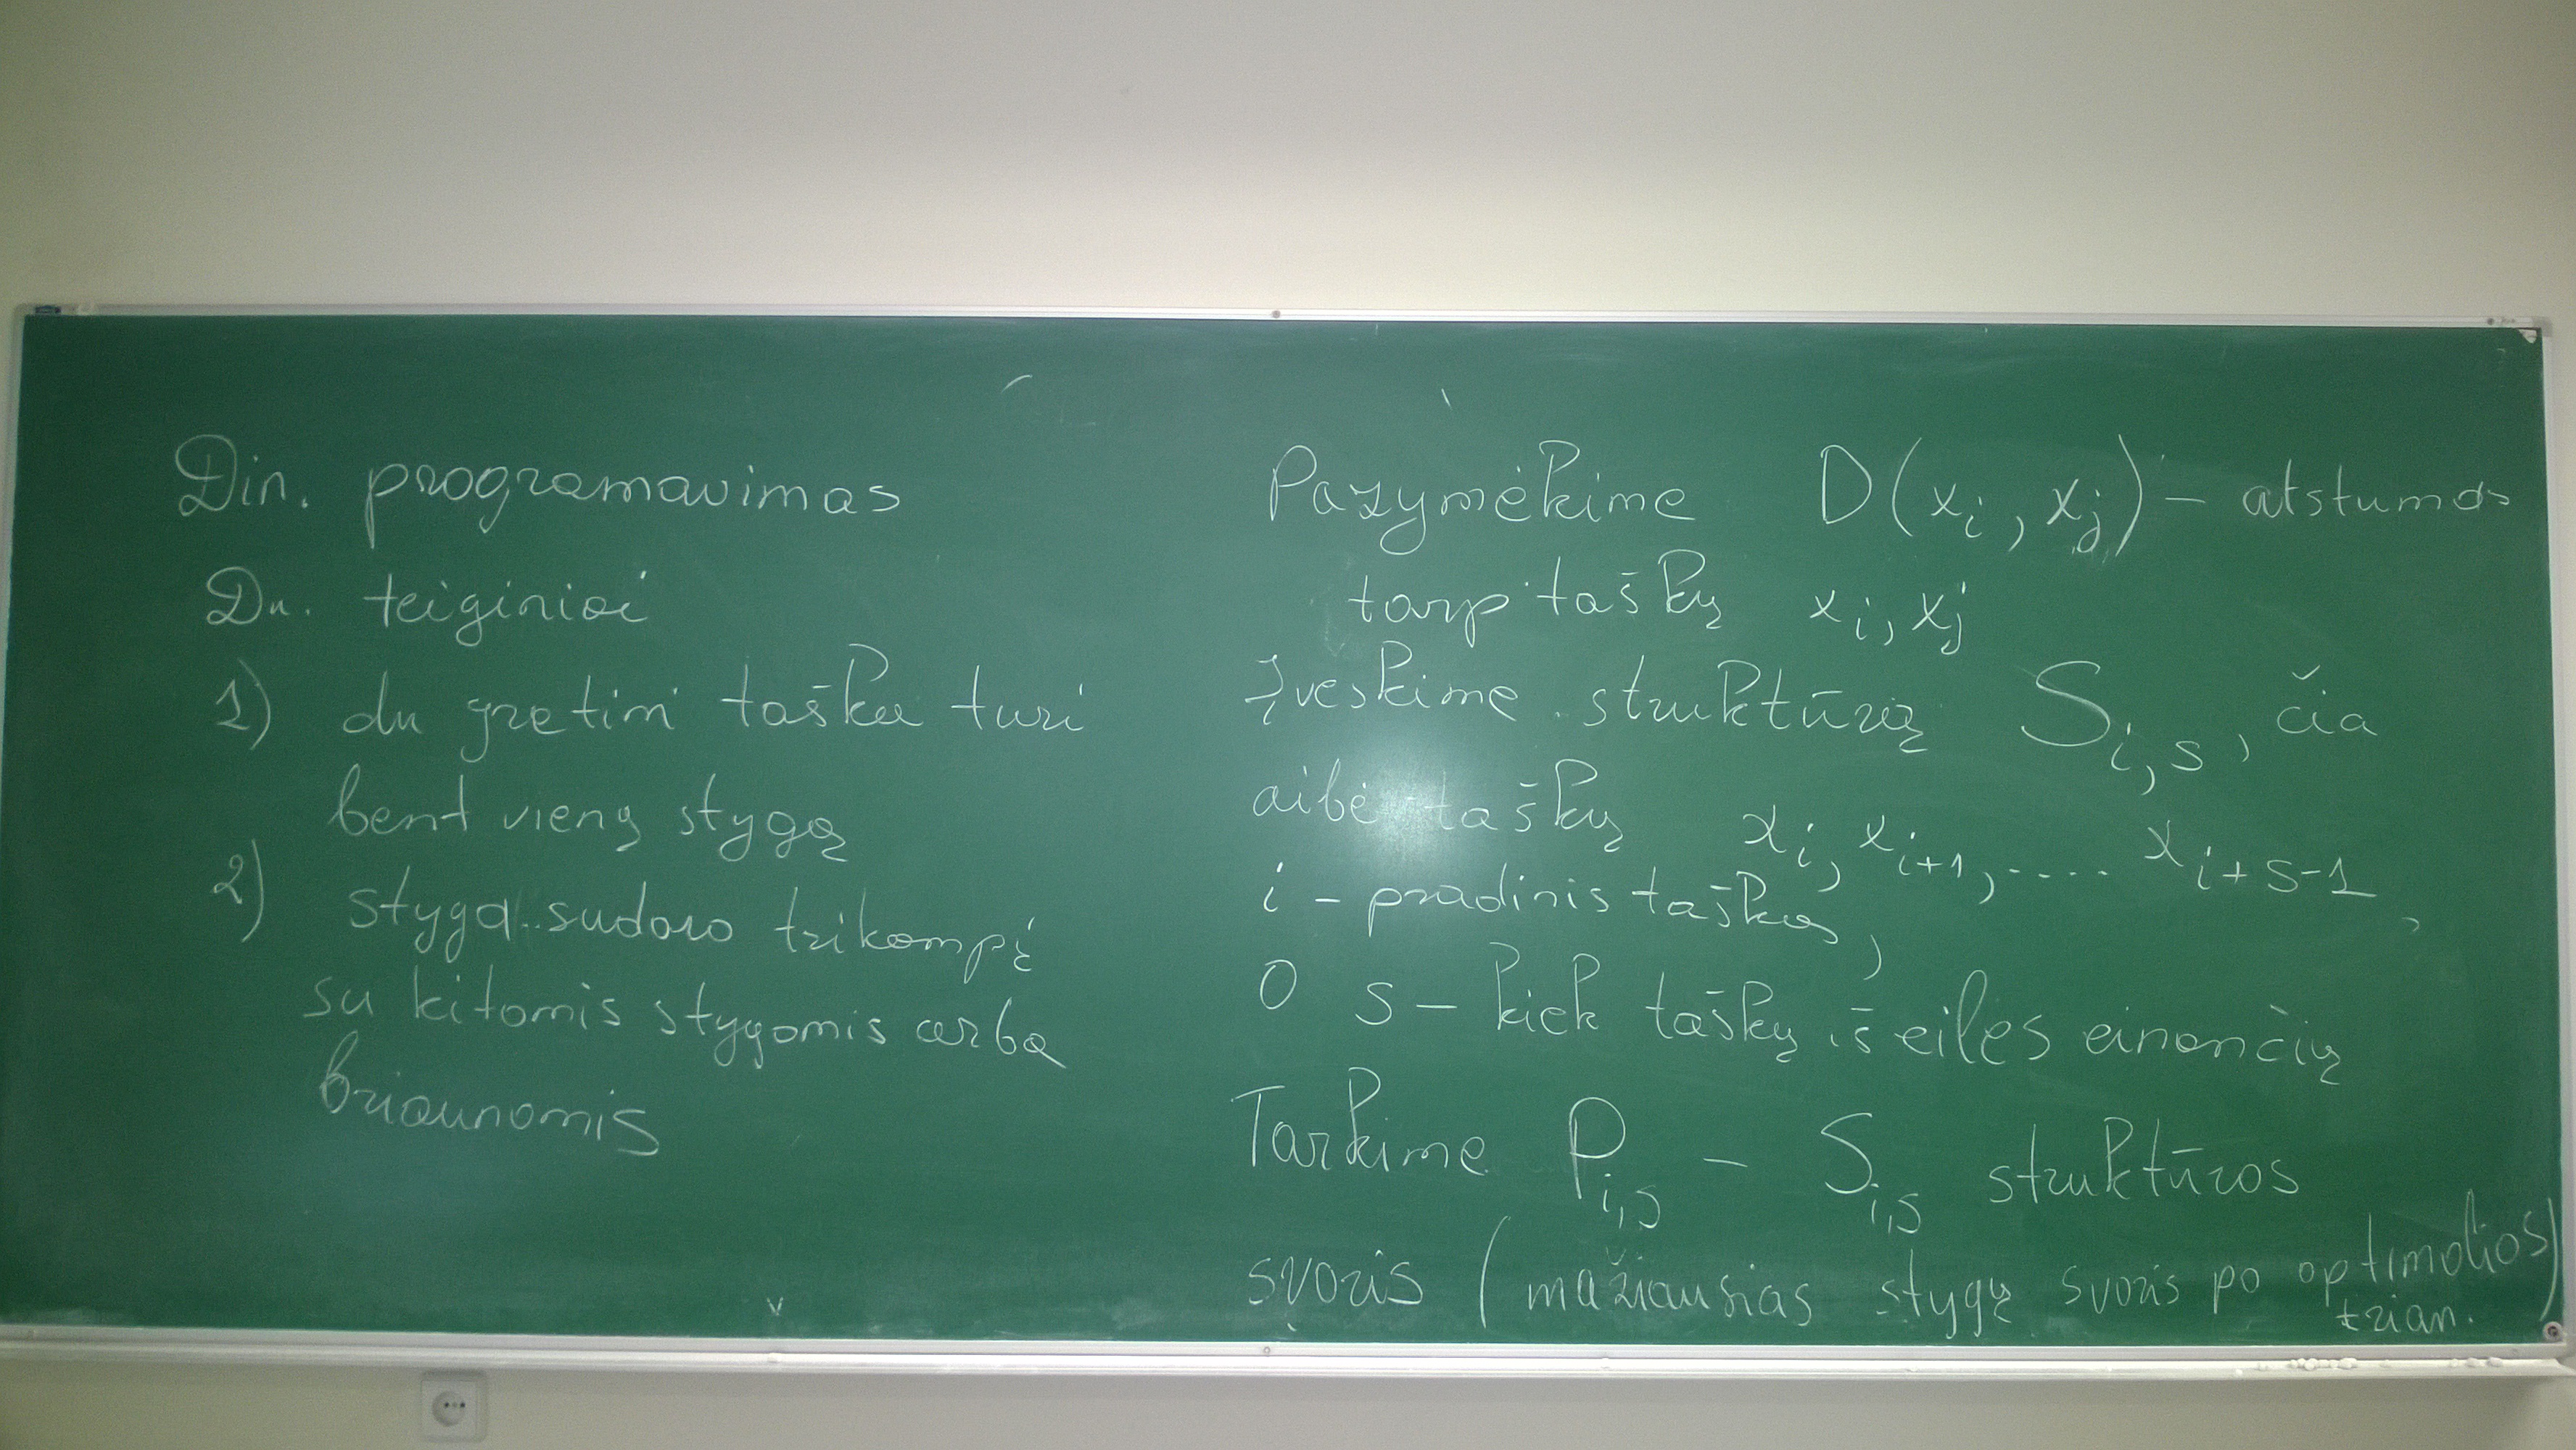 Din. programavimas
Du. teiginiai
1) du gretimi taškai turi
bent vieną stygą
2) styga sudaro trikampį
su kitomis stygomis arba
briaunomis
Pazymėkime D(x_i, x_j) – atstumas
tarp taškų x_i, x_j
Įveskime struktūrą S_{i,s}, čia
aibė taškų x_i, x_{i+1}, ..... x_{i+s-1},
i – pradinis taškas,
O s – kiek taškų iš eilės einančių
Tarkime P_{i,s} – S_{i,s} struktūros
svoris (mažiausias stygų svoris po optimalios
trian.)